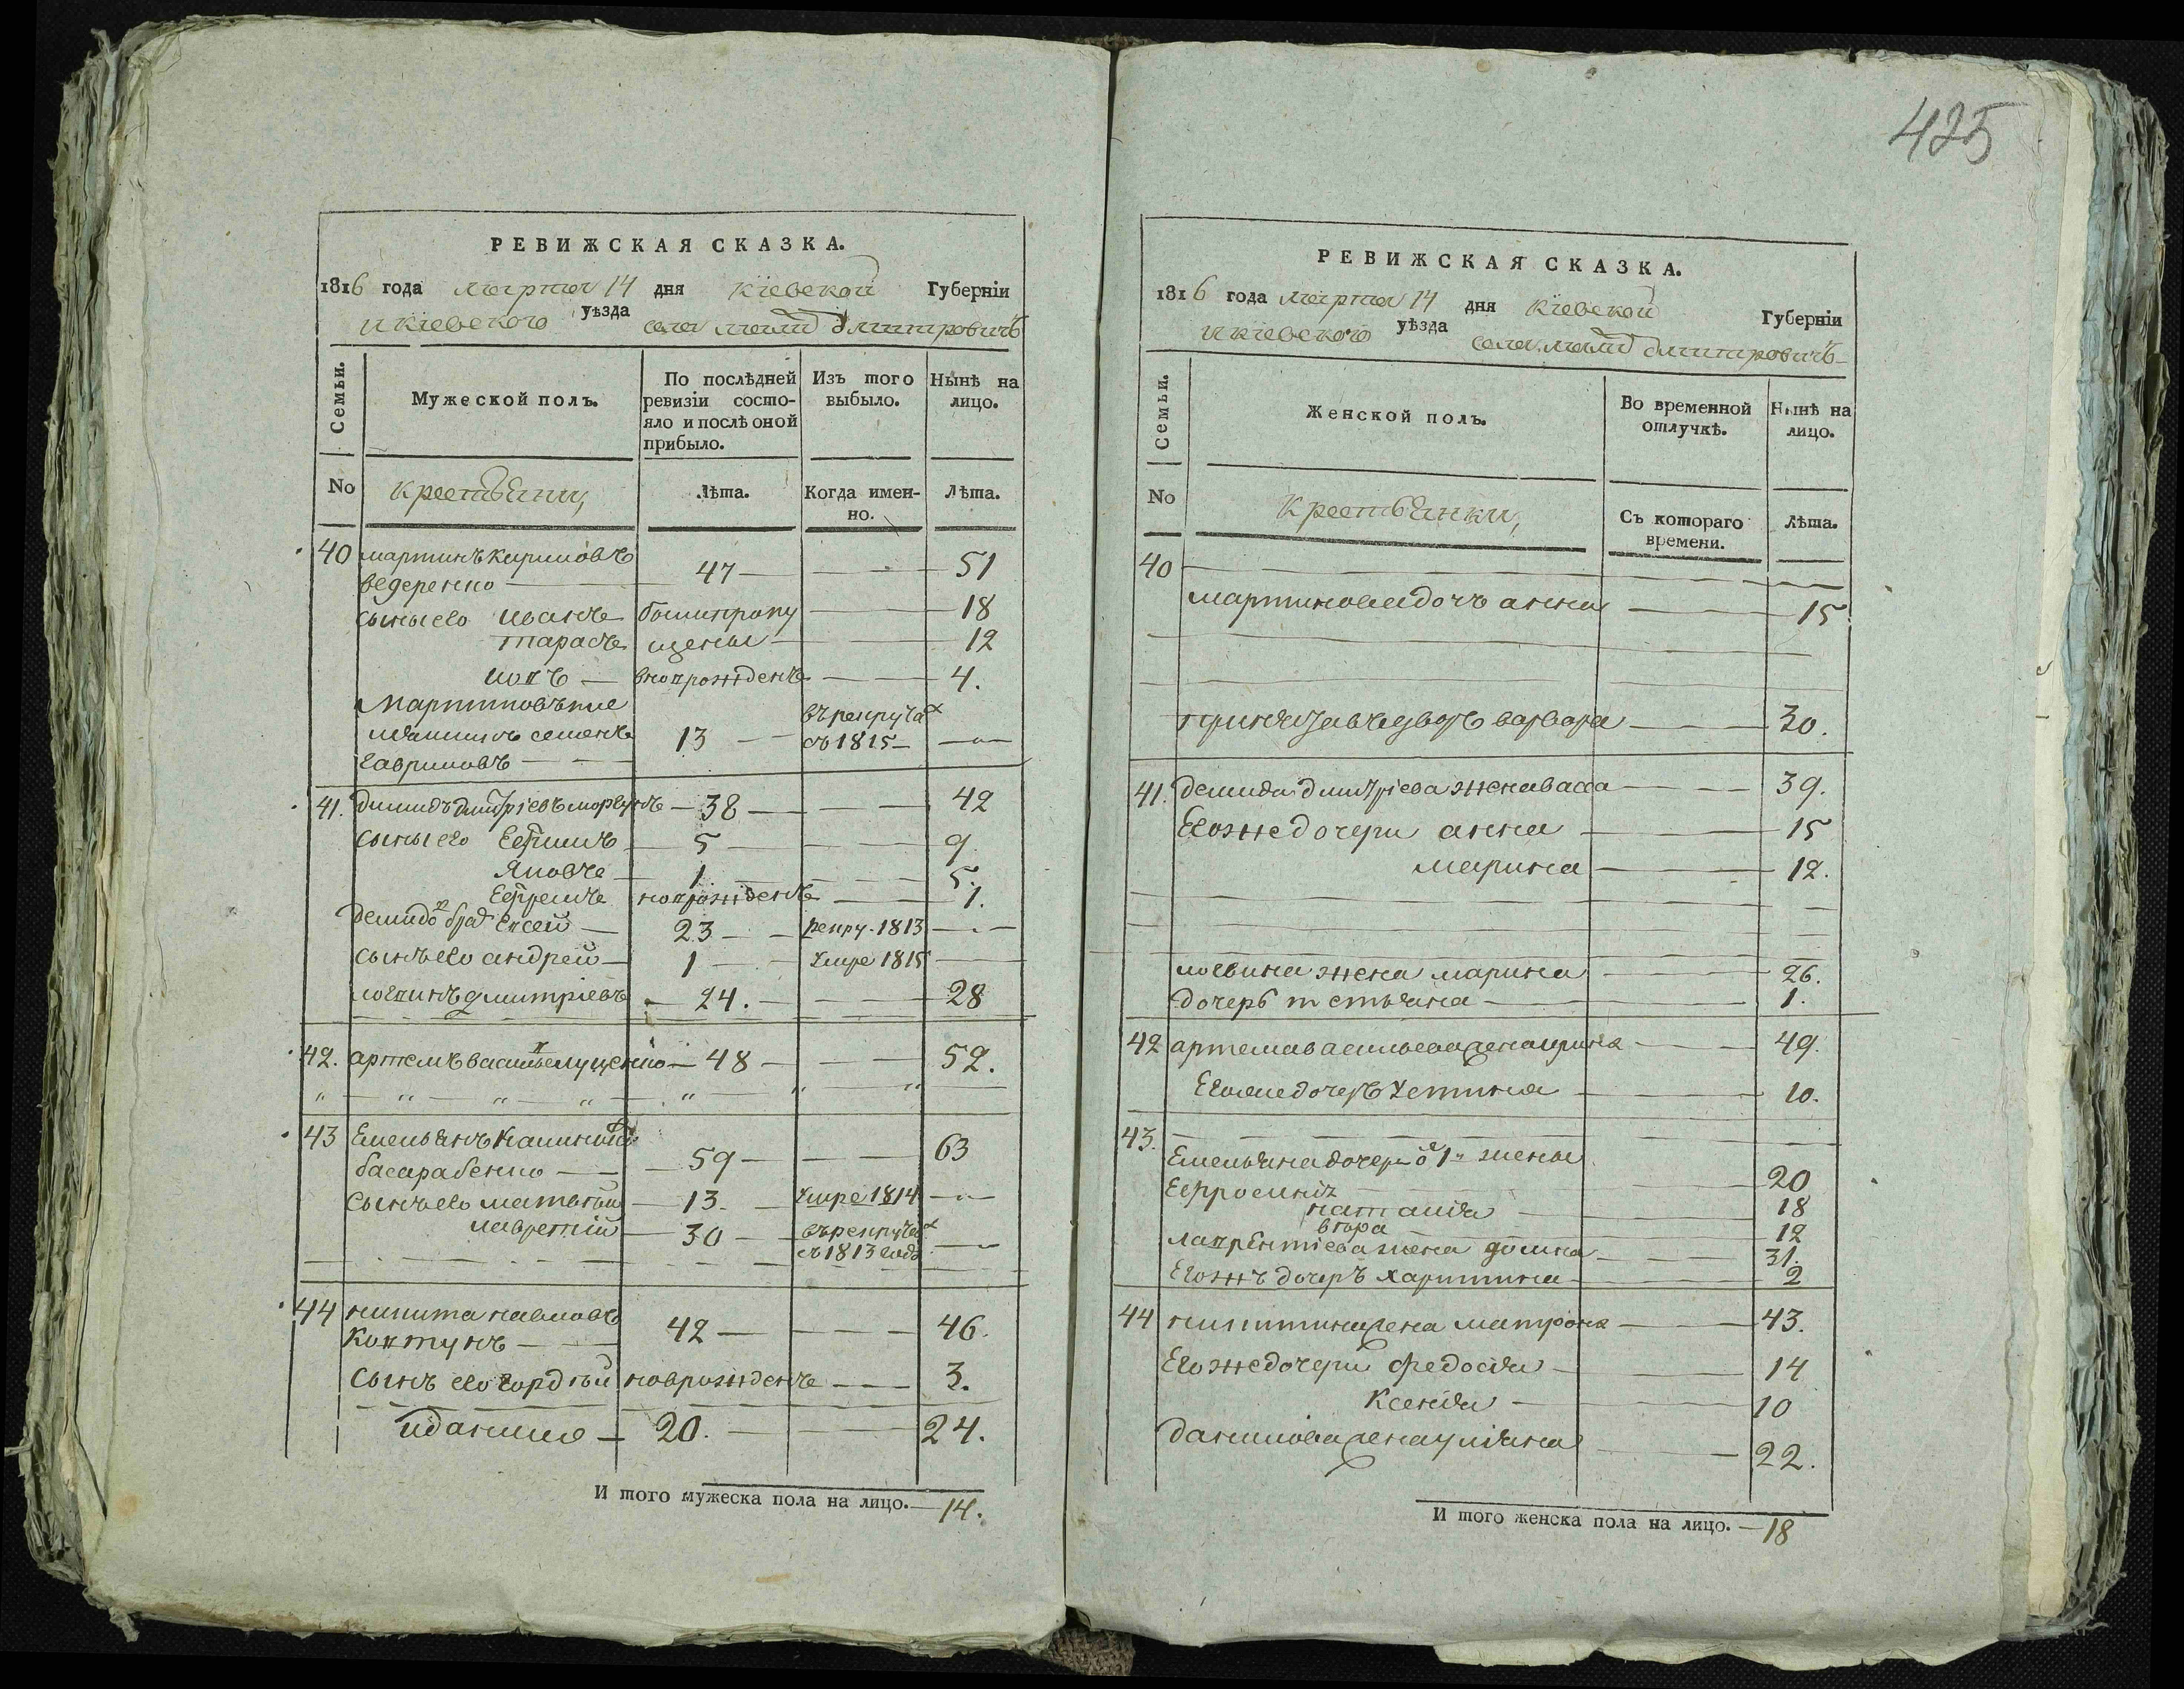 РЕВИЖСКАЯ СКАЗКА.
1816 года марта 14 дня Кіевской Губерніи
и кіевского уѣзда села малой дмитровичъ
Семьи. Мужеской полъ. По послѣдней ревизіи состояло и послѣ оной прибыло. Изъ того выбыло. Нынѣ на лицо.
No крестьяни, Лѣта. Когда именно. Лѣта.
40 мартинъ кириловъ
веденко — 47 — 51
сыны его иванъ 18
тарасъ 12
4.
Мартиновъ
семенъ 13 — въ рекрутах съ 1815 —
гавриловъ
41. димидъ димтріевъ — 38 — 42
сыны его Ефимъ — 5 — 9
Яковъ — 1 — 5.
Ефремъ новорожденъ — 1.
демидо брат Евсей — 23 — рекру. 1813 —
сынъ его андрей — 1 — умре 1815
логвинъ дмитріевъ — 24. — 28
42. артемъ василь луценко — 48 — 52.
43 Емельянъ Калиновъ
басарабенко — 59 — 63
сынъ его матвѣй — 13. — умре 1814 —
лаврентій — 30 — въ рекрутах
съ 1813 года
44 никита павловъ
Ковтунъ — 42 — 46.
сынъ его гордѣй новорожденъ — 3.
данило — 20. — 24.
И того мужеска пола на лицо. — 14.
425
РЕВИЖСКАЯ СКАЗКА.
1816 года марта 14 дня Кіевской Губерніи
и кіевского уѣзда села малой дмитровичъ
Семьи. Женской полъ. Во временной отлучкѣ. Нынѣ на лицо.
No Крестьянки, Съ котораго времени. Лѣта.
40
мартинова дочъ анна — 15
варвара — 30.
41. демида димтріева жена васса — 39.
Его же дочери анна — 15
марина — 12.
логвина жена марина — 26.
дочерь тетьяна — 1.
42 артема васильева жена ирина — 49.
Его же дочерь устина — 10.
43.
Емельяна дочери о 1й жены
Ефросинія — 20
наталія — 18
12
лаврентіева жена домна — 31.
Его жъ дочерь харитина — 2
44 никитина жена матрона — 43.
Его же дочери федосія — 14
Ксенія — 10
данилова жена уліяна — 22.
И того женска пола на лицо. — 18